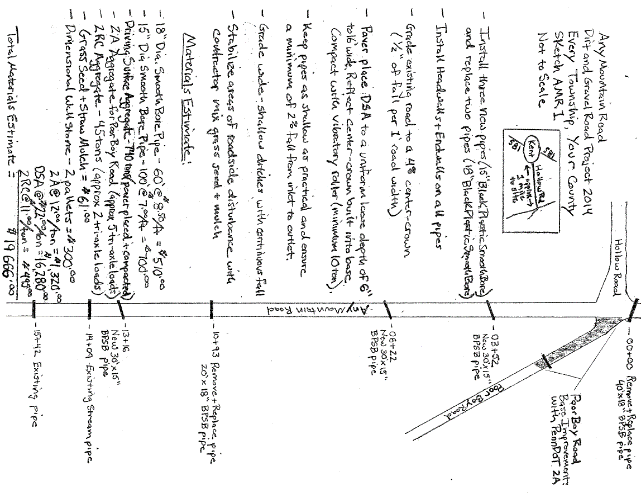 Any Mountain Road
Dirt and Gravel Road Project 2014
Every Township, Your County
Sketch AMR I
Not to Scale
Hollow Rd
1 mile
- Install three new pipes (15" Black Plastic Smooth Bore)
and replace two pipes (18" Black Plastic Smooth Bore)
- Install Headwalls + Endwalls on all pipes
- Grade existing road to a 4% center-crown
(½" of fall per 1' road width)
- Power place DSA to a uniform loose depth of 6"
to 16' wide. Reflect center-crown built into base.
Compact with vibratory roller (minimum 10 ton)
- Keep pipes as shallow as practical and ensure
a minimum of 2% fall from inlet to outlet.
- Grade wide-shallow ditches with continuous fall
- Stabilize areas of roadside disturbance with
contractor mix grass seed + mulch
Materials Estimate:
- 18" Dia. Smooth Bore Pipe - 60' @ 8.50/ft = $510.00
- 15" Dia. Smooth Bore Pipe - 100' @ 7.00/ft = $700.00
- Driving Surface Aggregate - 740 tons (power placed + compacted)
- 2A Aggregate for Poor Boy Road (approx 5 tri-axle loads)
- 2RC Aggregate - 45 tons (approx 2 tri-axle loads)
- Grass Seed + Straw Mulch = $61.00
- Dimensional Wall Stone - 2 pallets = $300.00
2A @ $12.00/ton = $1,320.00
DSA @ $22.00/ton = $16,280.00
2RC @ $11.00/ton = $495.00
Total Materials Estimate = $19,666.00
Hollow Road
Any Mountain Road
Poor Boy Road
00+00 Remove + Replace pipe
40'x18" BPSB pipe
Poor Boy Road
Base Improvement
with PennDOT 2A
03+52
New 30'x15"
BPSB pipe
06+22
New 30'x15"
BPSB pipe
10+93 Remove + Replace pipe
20'x18" BPSB pipe
13+16
New 30'x15"
BPSB pipe
14+09 Existing Stream pipe
15+42 Existing pipe